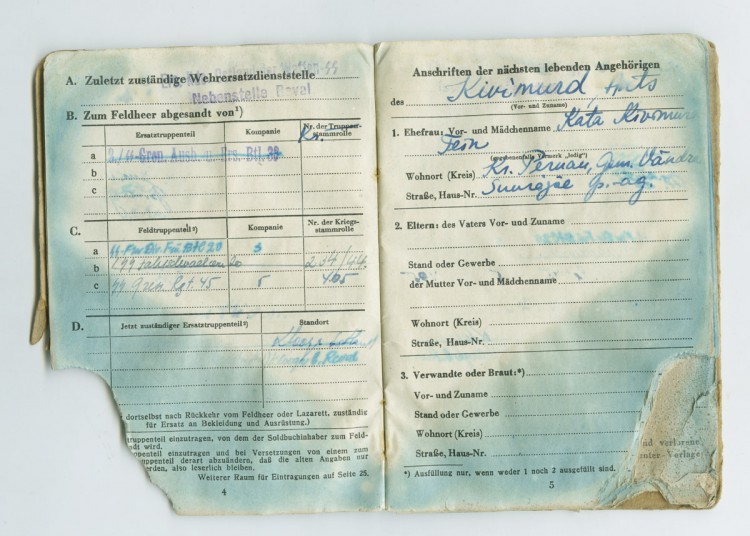 A. Zuletzt zuständige Wehrersatzdienststelle
Nebenstelle Reval
B. Zum Feldheer abgesandt von¹)
Ersatztruppenteil Kompanie Nr. der Truppen-stammrolle
a
b
c
C. Feldtruppenteil²) Kompanie Nr. der Kriegs-stammrolle
a
b 234/44
c Gren. Rgt. 45 5 405
D. Jetzt zuständiger Ersatztruppenteil²) Standort
dortselbst nach Rückkehr vom Feldheer oder Lazarett, zuständig
für Ersatz an Bekleidung und Ausrüstung.)
truppenteil einzutragen, von dem der Soldbuchinhaber zum Feld-
wird.
einzutragen und bei Versetzungen von einem zum
derart abzuändern, daß die alten Angaben nur
also leserlich bleiben.
Weiterer Raum für Eintragungen auf Seite 25.
4
Anschriften der nächsten lebenden Angehörigen
des Kivimurd
(Vor- und Zuname)
1. Ehefrau: Vor- und Mädchenname Kata Kivimurd
Wohnort (Kreis) Kr. Pernau, Gem. Vändra
Straße, Haus-Nr.
2. Eltern: des Vaters Vor- und Zuname
Stand oder Gewerbe
der Mutter Vor- und Mädchenname
Wohnort (Kreis)
Straße, Haus-Nr.
3. Verwandte oder Braut:*)
Vor- und Zuname
Stand oder Gewerbe
Wohnort (Kreis)
Straße, Haus-Nr.
*) Ausfüllung nur, wenn weder 1 noch 2 ausgefüllt sind.
5